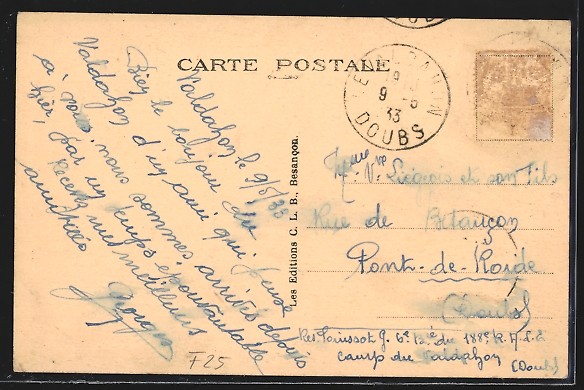 CARTE POSTALE
LE VALDAHON
9
9 - 5
33
DOUBS
Valdahon le 9/5/33
Bien le bonjour du
Valdahon d'un ami qui pense
à vous nous sommes arrivés depuis
hier, par un temps épouvantable
Recevez mes meilleures
amitiés
Georges
Les Editions C. L. B., Besançon.
Mme Vve Liégeois et son fils
Rue de Besançon
Pont-de-Roide
(Doubs)
G. 6e Bie du 188e R.A.L.
camp du Valdahon (Doubs)
F25